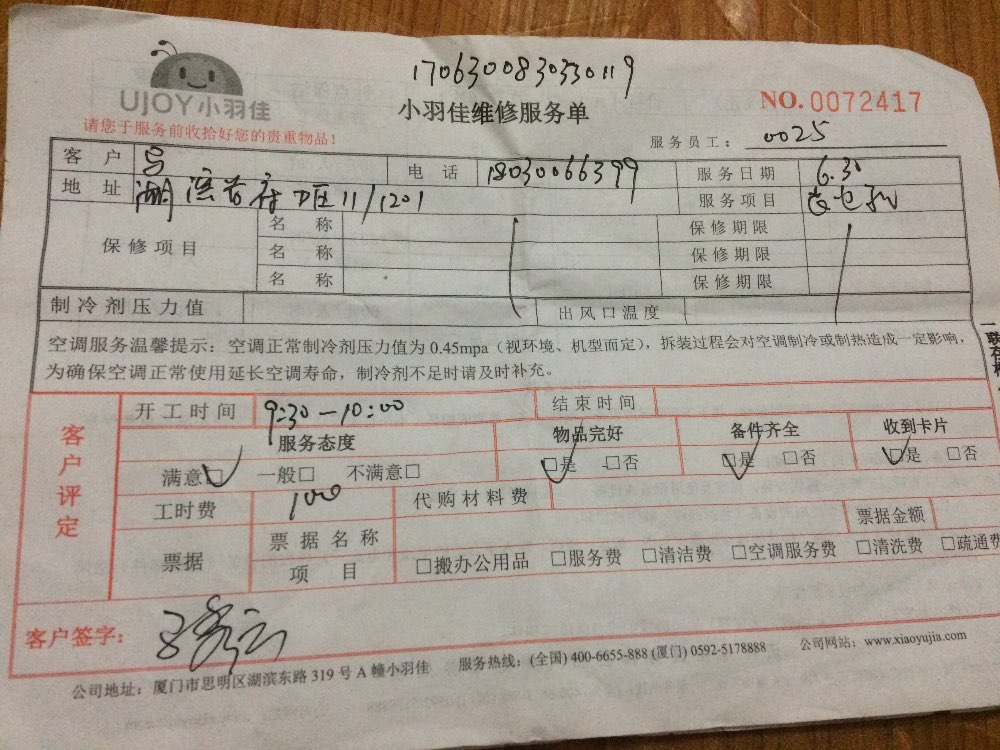 170630083030119
UJOY小羽佳
小羽佳维修服务单
NO.0072417
请您于服务前收拾好您的贵重物品！
服务员工： 0025
客 户 电 话 18030066399 服务日期 6.30
地 址 湖滨首府 11/1201 服务项目
保修项目 名 称 保修期限
名 称 保修期限
名 称 保修期限
制冷剂压力值 出风口温度
空调服务温馨提示：空调正常制冷剂压力值为 0.45mpa（视环境、机型而定），拆装过程会对空调制冷或制热造成一定影响，
为确保空调正常使用延长空调寿命，制冷剂不足时请及时补充。
客户评定
开工时间 9:30—10:00 结束时间
服务态度 物品完好 备件齐全 收到卡片
满意□ 一般□ 不满意□ □是 □否 □是 □否 □是 □否
工时费 100 代购材料费
票据 票据名称 票据金额
项 目 □搬办公用品 □服务费 □清洁费 □空调服务费 □清洗费 □疏通费
客户签字：
公司地址：厦门市思明区湖滨东路 319 号 A 幢小羽佳 服务热线：(全国) 400-6655-888 (厦门) 0592-5178888 公司网站：www.xiaoyujia.com